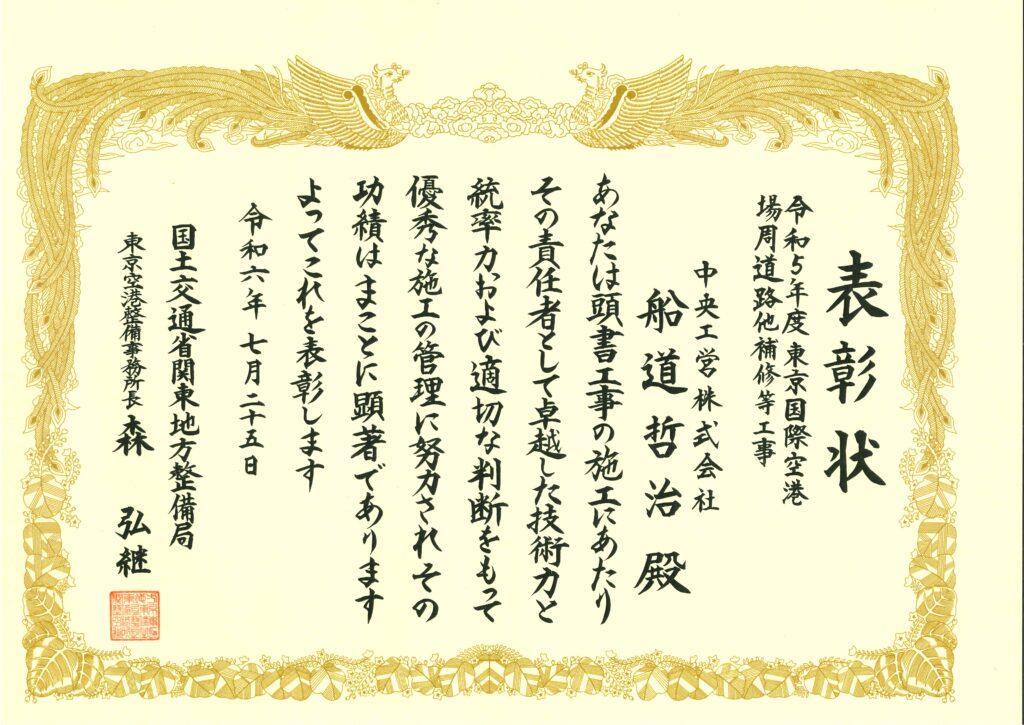 表彰状
令和5年度 東京国際空港
場周道路他補修等工事
中央工営株式会社
船道哲治 殿
あなたは頭書工事の施工にあたり
その責任者として卓越した技術力と
統率力および適切な判断をもって
優秀な施工の管理に努力されその
功績はまことに顕著であります
よってこれを表彰します
令和六年 七月二十五日
国土交通省関東地方整備局
東京空港整備事務所長 森 弘継